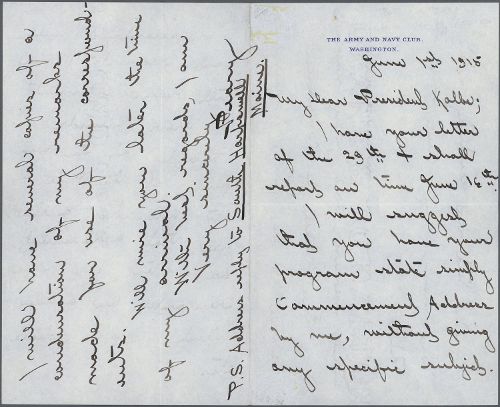 THE ARMY AND NAVY CLUB
WASHINGTON.
June 1st 1915
My dear President Kolbe;
I have your letter
of the 29th & shall
report on time June 16th
I will suggest
that you have your
program state simply
Commencement Address
by me, without giving
any specific subject.
I will have several copies of a
condensation of my remarks
made for use of the correspond-
ents.
Will wire you later the time
of my arrival.
With best regards, I am
Very sincerely,
Peary
P.S. Address reply to South Harpswell
Maine.